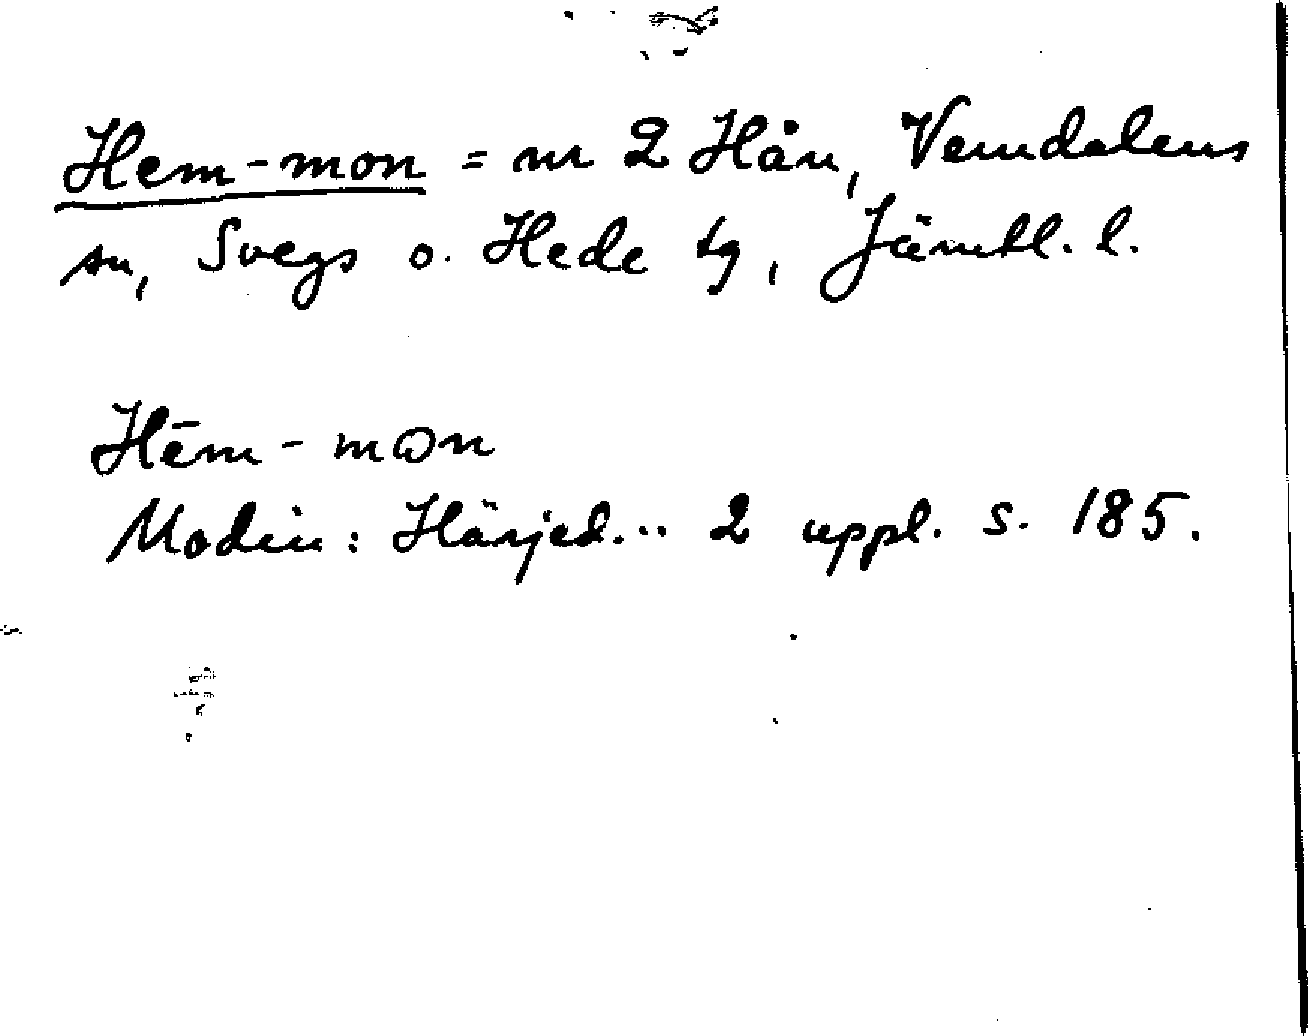 Hem-mon = nr 2 Hån, Vemdalens
sn, Svegs o. Hede tg, Jämtl. l.
Hēm-mo̹n
Modin: Härjed... 2 uppl. s. 185.